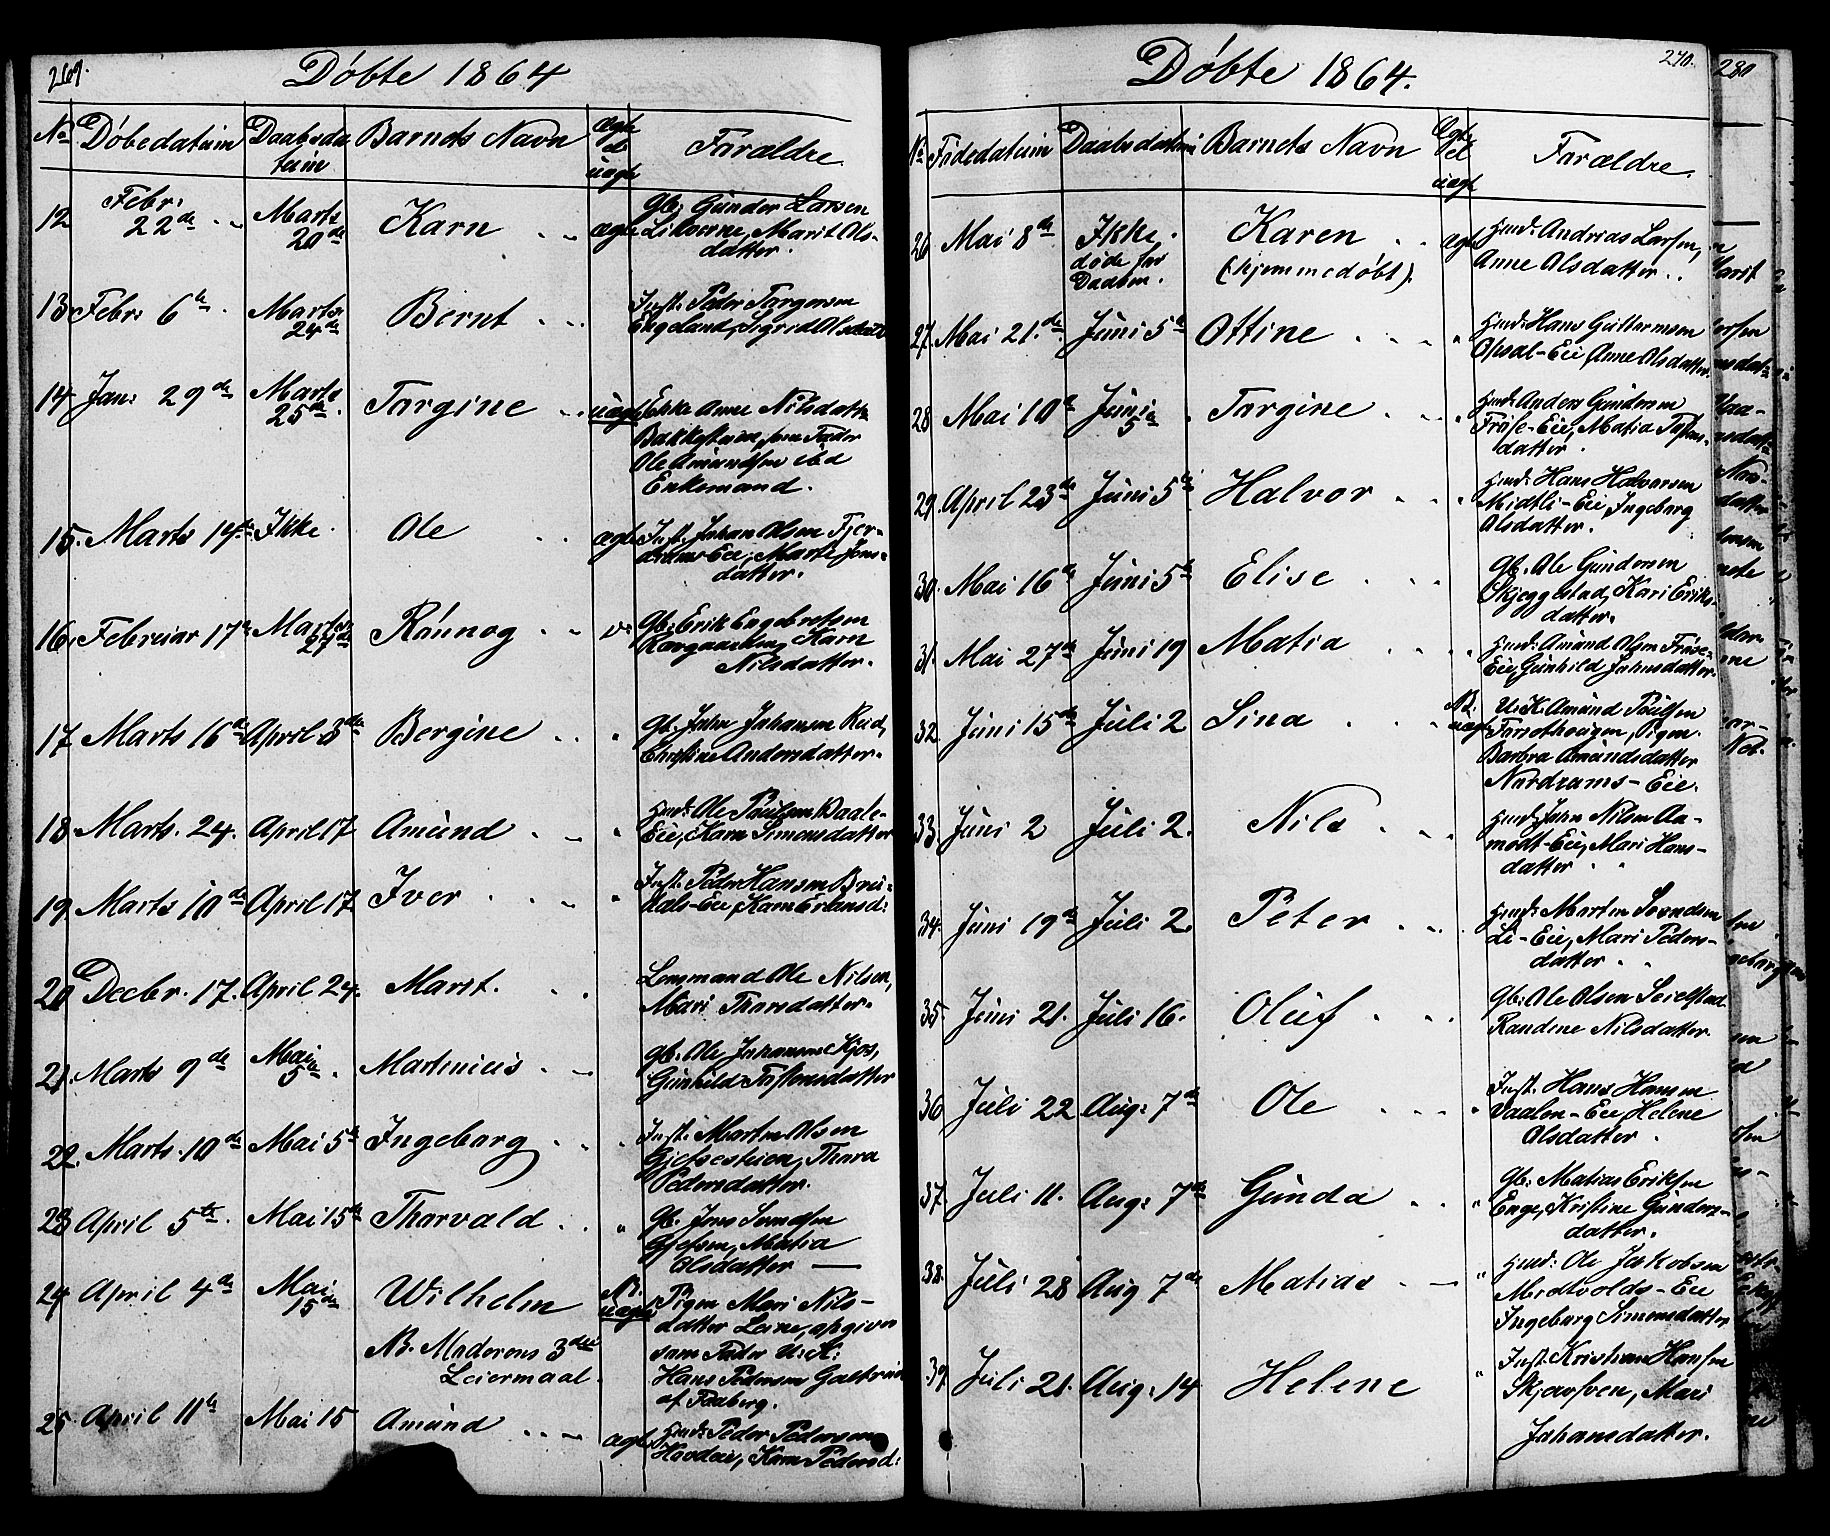 269.
Døbte 1864
No Døbedatum Daabsda Barnets Navn Ægte Forældre
tum el
uægte
12 Febr: 22de Marts 20de Karn ægte Gb: Gunder Larsen
Marit Ols-
datter.
13 Febr: 6te Marts 24de Bernt Inst. Peder Torgersen
Engeland, Sigrid Olsdatter
14 Jan: 29de Marts 25de Torgine uægte Enke Anne Nilsdatter
Bakkestuen, som Fader
Ole Amundsen ibd
Enkemand.
15. Marts 14de Ikke. Ole ægte Inst. Johan Olsen
Eie, Marte Jens-
datter.
16. Februar 17de Marts 27de Rønnog Gb: Erik Engebretsen
Karn
Nilsdatter.
17 Marts 16de April 3die Bergine " Gb. John Johansen
Christine Andersdatter.
18 Marts. 24. April 17 Amund " Huusm: Ole Poulsen
Eie, Karn Simensdatter
19. Marts 10de April 17 Iver " Inst. Peder Hansen
Eie, Karn
20 Decbr. 17. April 24. Marit. Ole Nilsen,
Mari Thorsdatter.
21. Marts 9de Mai 5te. Martinius Gb. Ole Johansen Kjos,
Gunhild Tostensdatter
22. Marts. 10de Mai 5te Ingeborg " Inst: Morten Olsen
Thora
Pedersdatter.
23 April 5te. Mai 15de Thorvald " Gb. Jens
Matia
Olsdatter
24 April 4de Mai 15de Wilhelm uægte Pigen Mari Nils-
datter opgiven
NB. Moderens 3die som Fader U: K:
Leiermaal. Hans Pedersen
af Faaberg.
25. April 11te Mai 15 Amund ægte Huusm: Peder Pedersen
Karn Pedersd:
270.
Døbte 1864.
No Fødedatum Daabsdatum Barnets Navn Ægte Forældre.
el
uægte
26 Mai 8de Ikke. Karen ægte Huusm: Andreas Larsen,
døde før (hjemmedøbt). Anne Olsdatter.
Daaben.
27. Mai 21.de Juni 5te Ottine " Huusm: Hans Guttormsen
Opsal-Eie, Anne Olsdatter.
28. Mai 10de Juni 5te Torgine " Huusm: Anders Gundersen
Frøse-Eie, Matia Tostens-
datter.
29. April 23de Juni 5te Halvor " Huusm: Hans Halvorsen
Midtli-Eie, Ingeborg
Olsdatter.
30. Mai 16de Juni 5te Elise Gb. Ole Gundersen
Skjeggestad, Kari Eriks-
datter.
31. Mai 27de Juni 19 Matia Huusm: Amund Olsen Frøse-
Eie, Gunhild Johnsdatter.
32. Juni 15de Juli 2 Sina uægte U: K: Amund Poulsen
Pigen
Barbra Amundsdatter
Nordrums-Eie.
33. Juni 2 Juli 2. Nils Huusm: John Nilsen Aa-
modt-Eie, Mari Hans-
datter.
34. Juni 19de Juli 2. Peter Huusm: Morten Svendsen
Li-Eie, Mari Peders-
datter.
35. Juni 21. Juli 16. Oluf Gb: Ole Olsen
Randine Nilsdatter.
36. Juli 22 Aug: 7de Ole " Inst. Hans Hansen
Vaalen-Eie, Helene
Olsdatter.
37. Juli 11. Aug: 7de Gunda " Gb: Matias Eriksen
Enge, Kristine Gunders-
datter.
38. Juli 28 Aug 7de Matias " Huusm: Ole Jakobsen
Midtvolds-Eie
Ingeborg Simensdatter
39. Juli 21. Aug: 14 Helene " Inst. Kristian Hansen
Mari
Johansdatter.
280